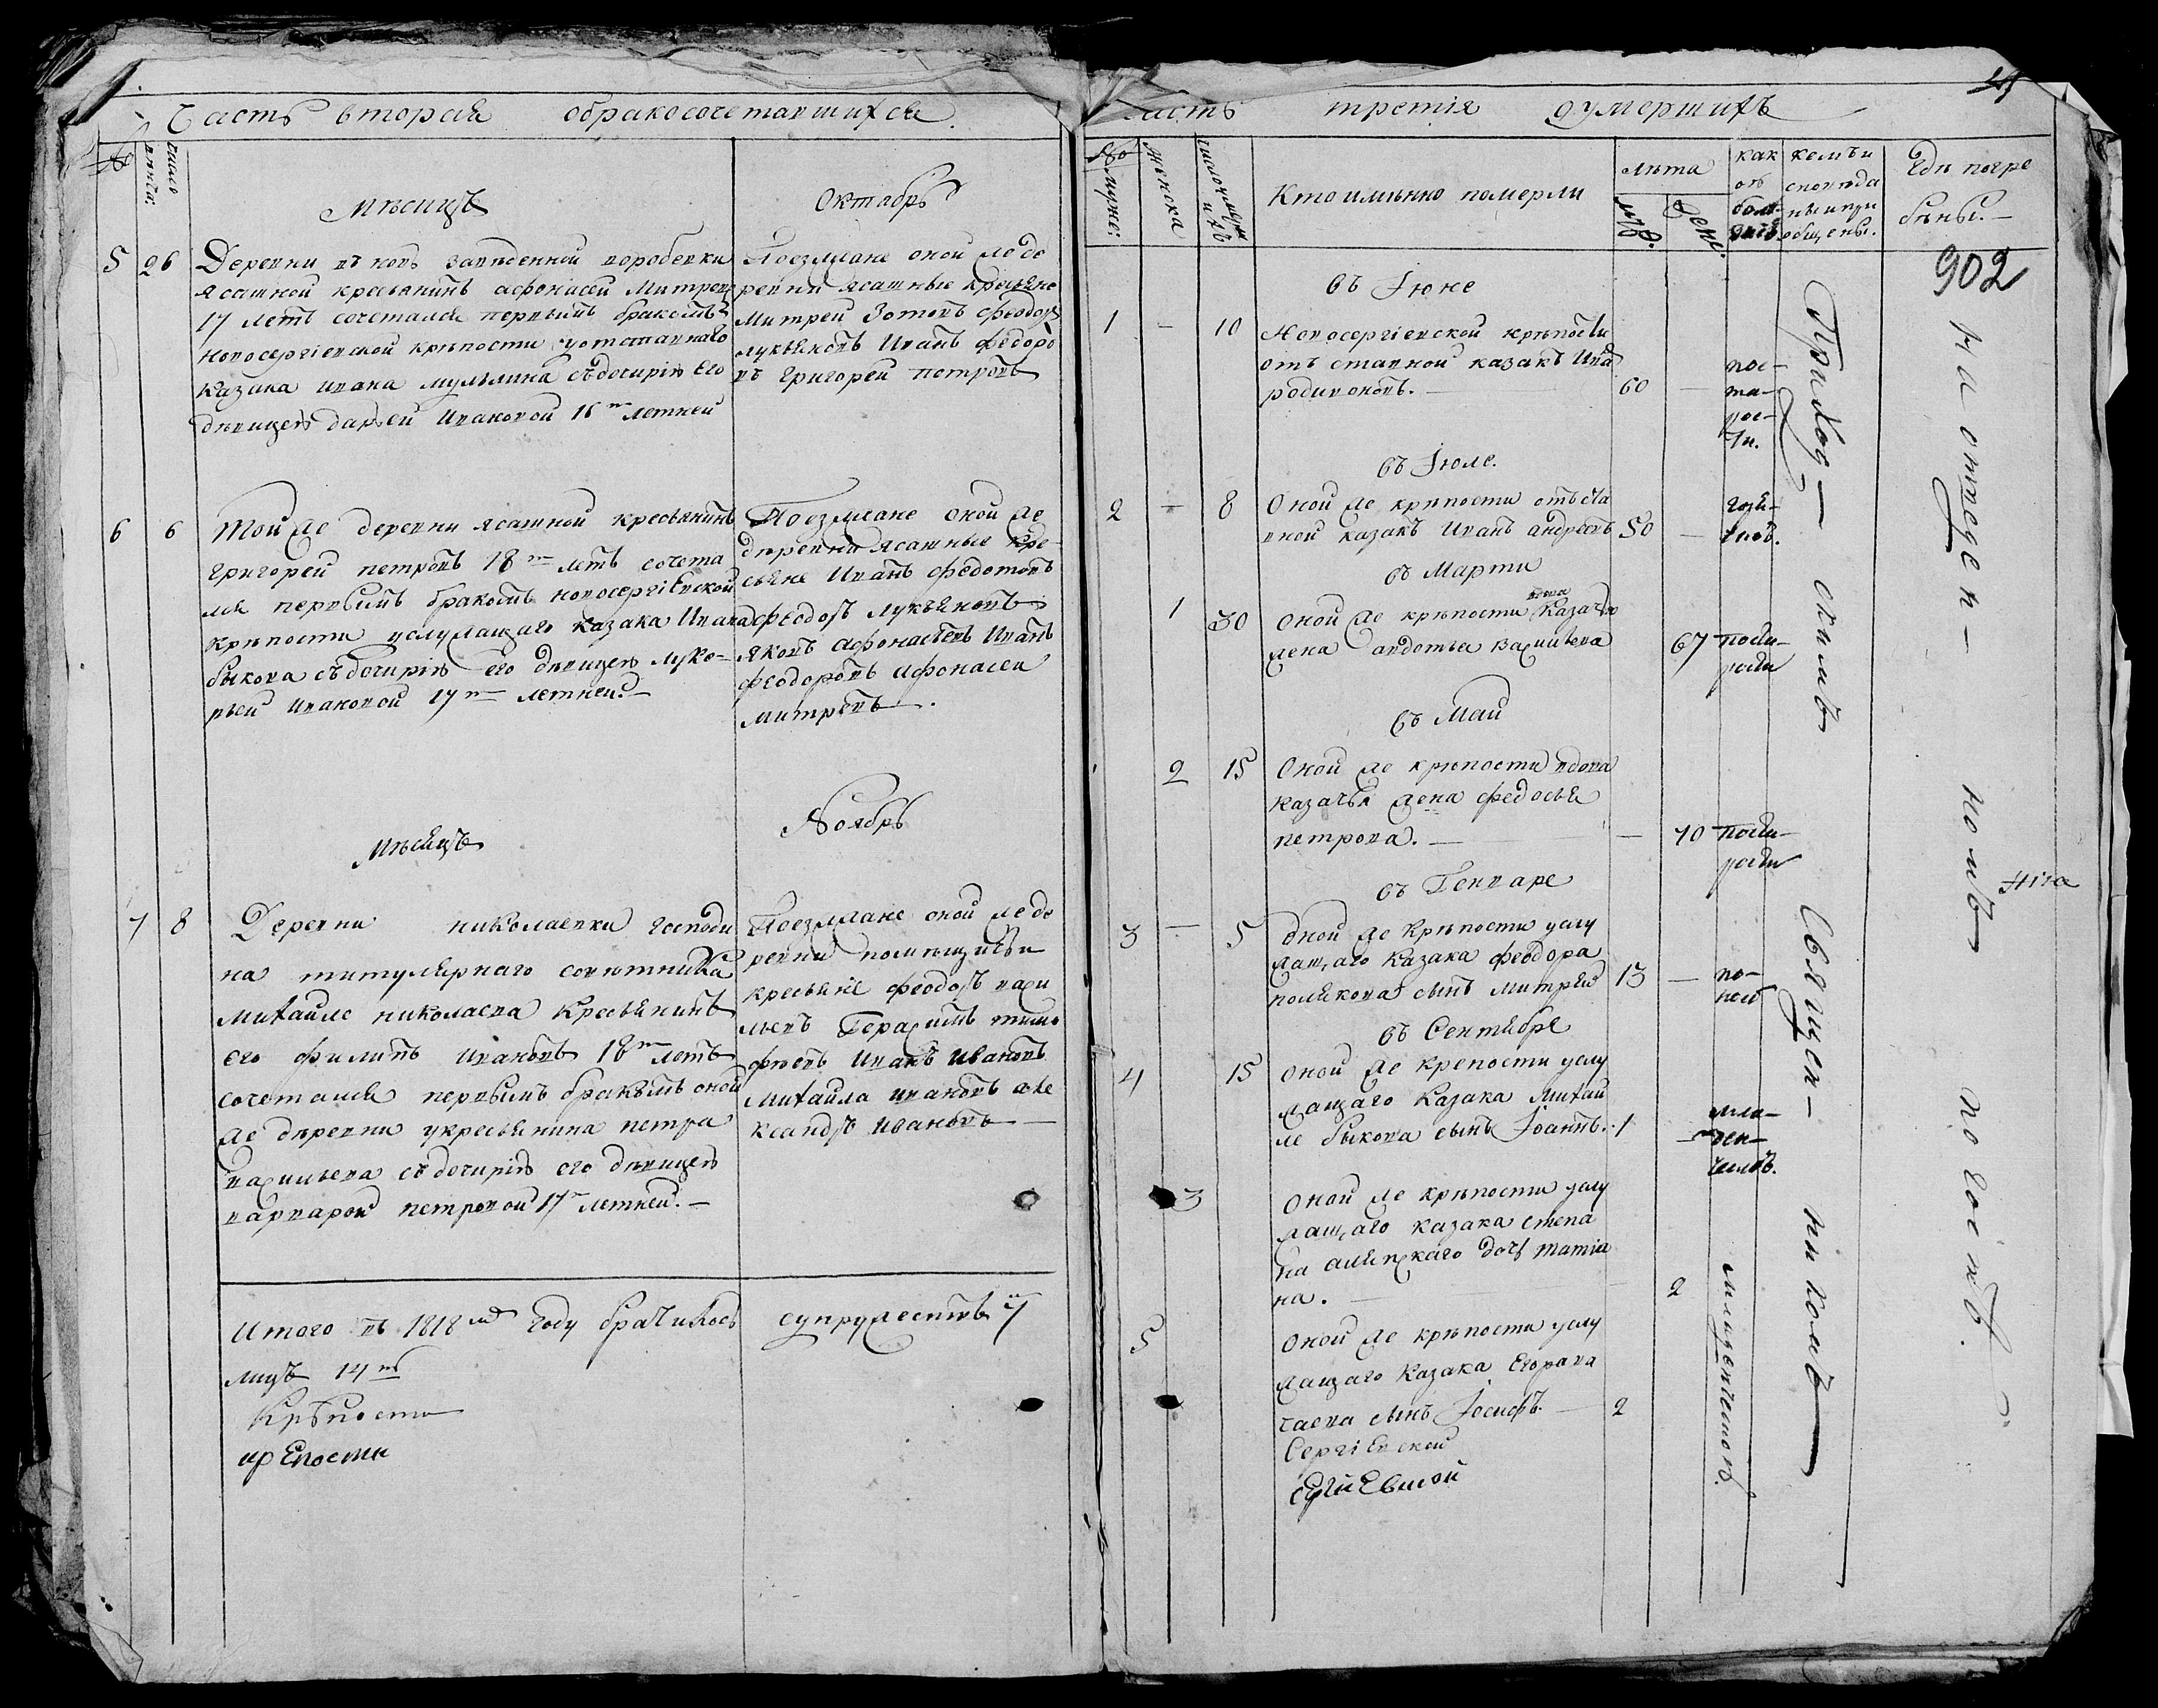 Часть вторая обракосочетавшихся
№
число
браковъ
Мѣсяцъ
Октябрь
5 26 Деревни въ новь заведенной воробевки
ясашной кресьянинъ афонасей Митреев
17 летъ сочетался первымъ бракомъ
новосергіевской крѣпости уотставнаго
казака ивана мулылина съдочирію Его
дѣвицею дарьей Ивановой 16 летней
Поезжане оной же де
ревни ясашные кресьяне
Митрей Зотовъ феодоръ
лукъяновъ Иванъ федоро
въ Григорей петровъ
6 6 Той же деревни ясашной кресьянинъ
григорей петровъ 18 летъ сочета
лся первымъ бракомъ новосергіевской
крѣпости услужащаго казака Ивана
быкова съдочирію его дѣвицею луке-
рьей ивановой 17 летней. —
Поезжане оной же
дѣревни ясашные кре-
сьяне Иванъ федотовъ
феодоръ лукъяновъ
Яковъ афонасьевъ Иванъ
феодоровъ афонасей
митревъ.
Мѣсяцъ
Ноябрь
7 8 Деревни николаевки господи
на титулярнаго советника
михайле николаева Кресьянинъ
его филипъ ивановъ 18 летъ
сочетался первымъ бракомъ оной
же дѣревни укресьянина петра
васильева съдочирію его дѣвицею
варварой петровой 17 летней. —
Поезжане оной же де
ревни помѣщичьи
кресьяне феодоръ васи
льевъ Герасимъ тимо
феевъ Иванъ Ивановъ
михайла ивановъ але
ксандръ Ивановъ —
Итого въ 1818 году брачилось супружествъ 7
лицъ 14
Крѣпости
крепости
Часть третія оумершихъ
№ муже:
женска
число умерших
Кто имянно померли
лѣта
муж.
жен.
как
ой
боле
знію
кемъ и
споведа
ны и при
общены.
Гдѣ погре
бены. —
902
въ Іюне
1 — 10 Новосергіевской крѣпости
отъставной казакъ Ива
родивоновъ. — 60 —
пос-
та-
рос-
ти.
въ Іюле.
2 — 8 Оной же крѣпости отъста
вной казакъ Иванъ андреевъ 50 —
въ Марти
1 30 оной же крѣпости вдова Казачья
жена авдотья васильева 67 поста-
рости
въ Май
2 15 Оной же крѣпости вдова
казачья жена федосья
петрова. — — 70 поста-
рости
въ Генваре
3 — 5 оной же крѣпости услу
жащаго казака феодора
полякова сынъ митрей 13 —
въ Сентябре
4 15 оной же крепости услу
жащаго казака михай
ле быкова сынъ Іоаннъ. 1 —
мла-
ден-
чествъ.
3 оной же крѣпости услу
жащаго казака степа
на аляпскаго дочь татія
на. — 2
5 оной же крѣпости услу
жащаго казака Егорава
чаева сынъ Іосифъ. — 2
младенчествомъ.
Сергіевской
Приход— скимъ Священ— никомъ
на отведен— номъ погосте.